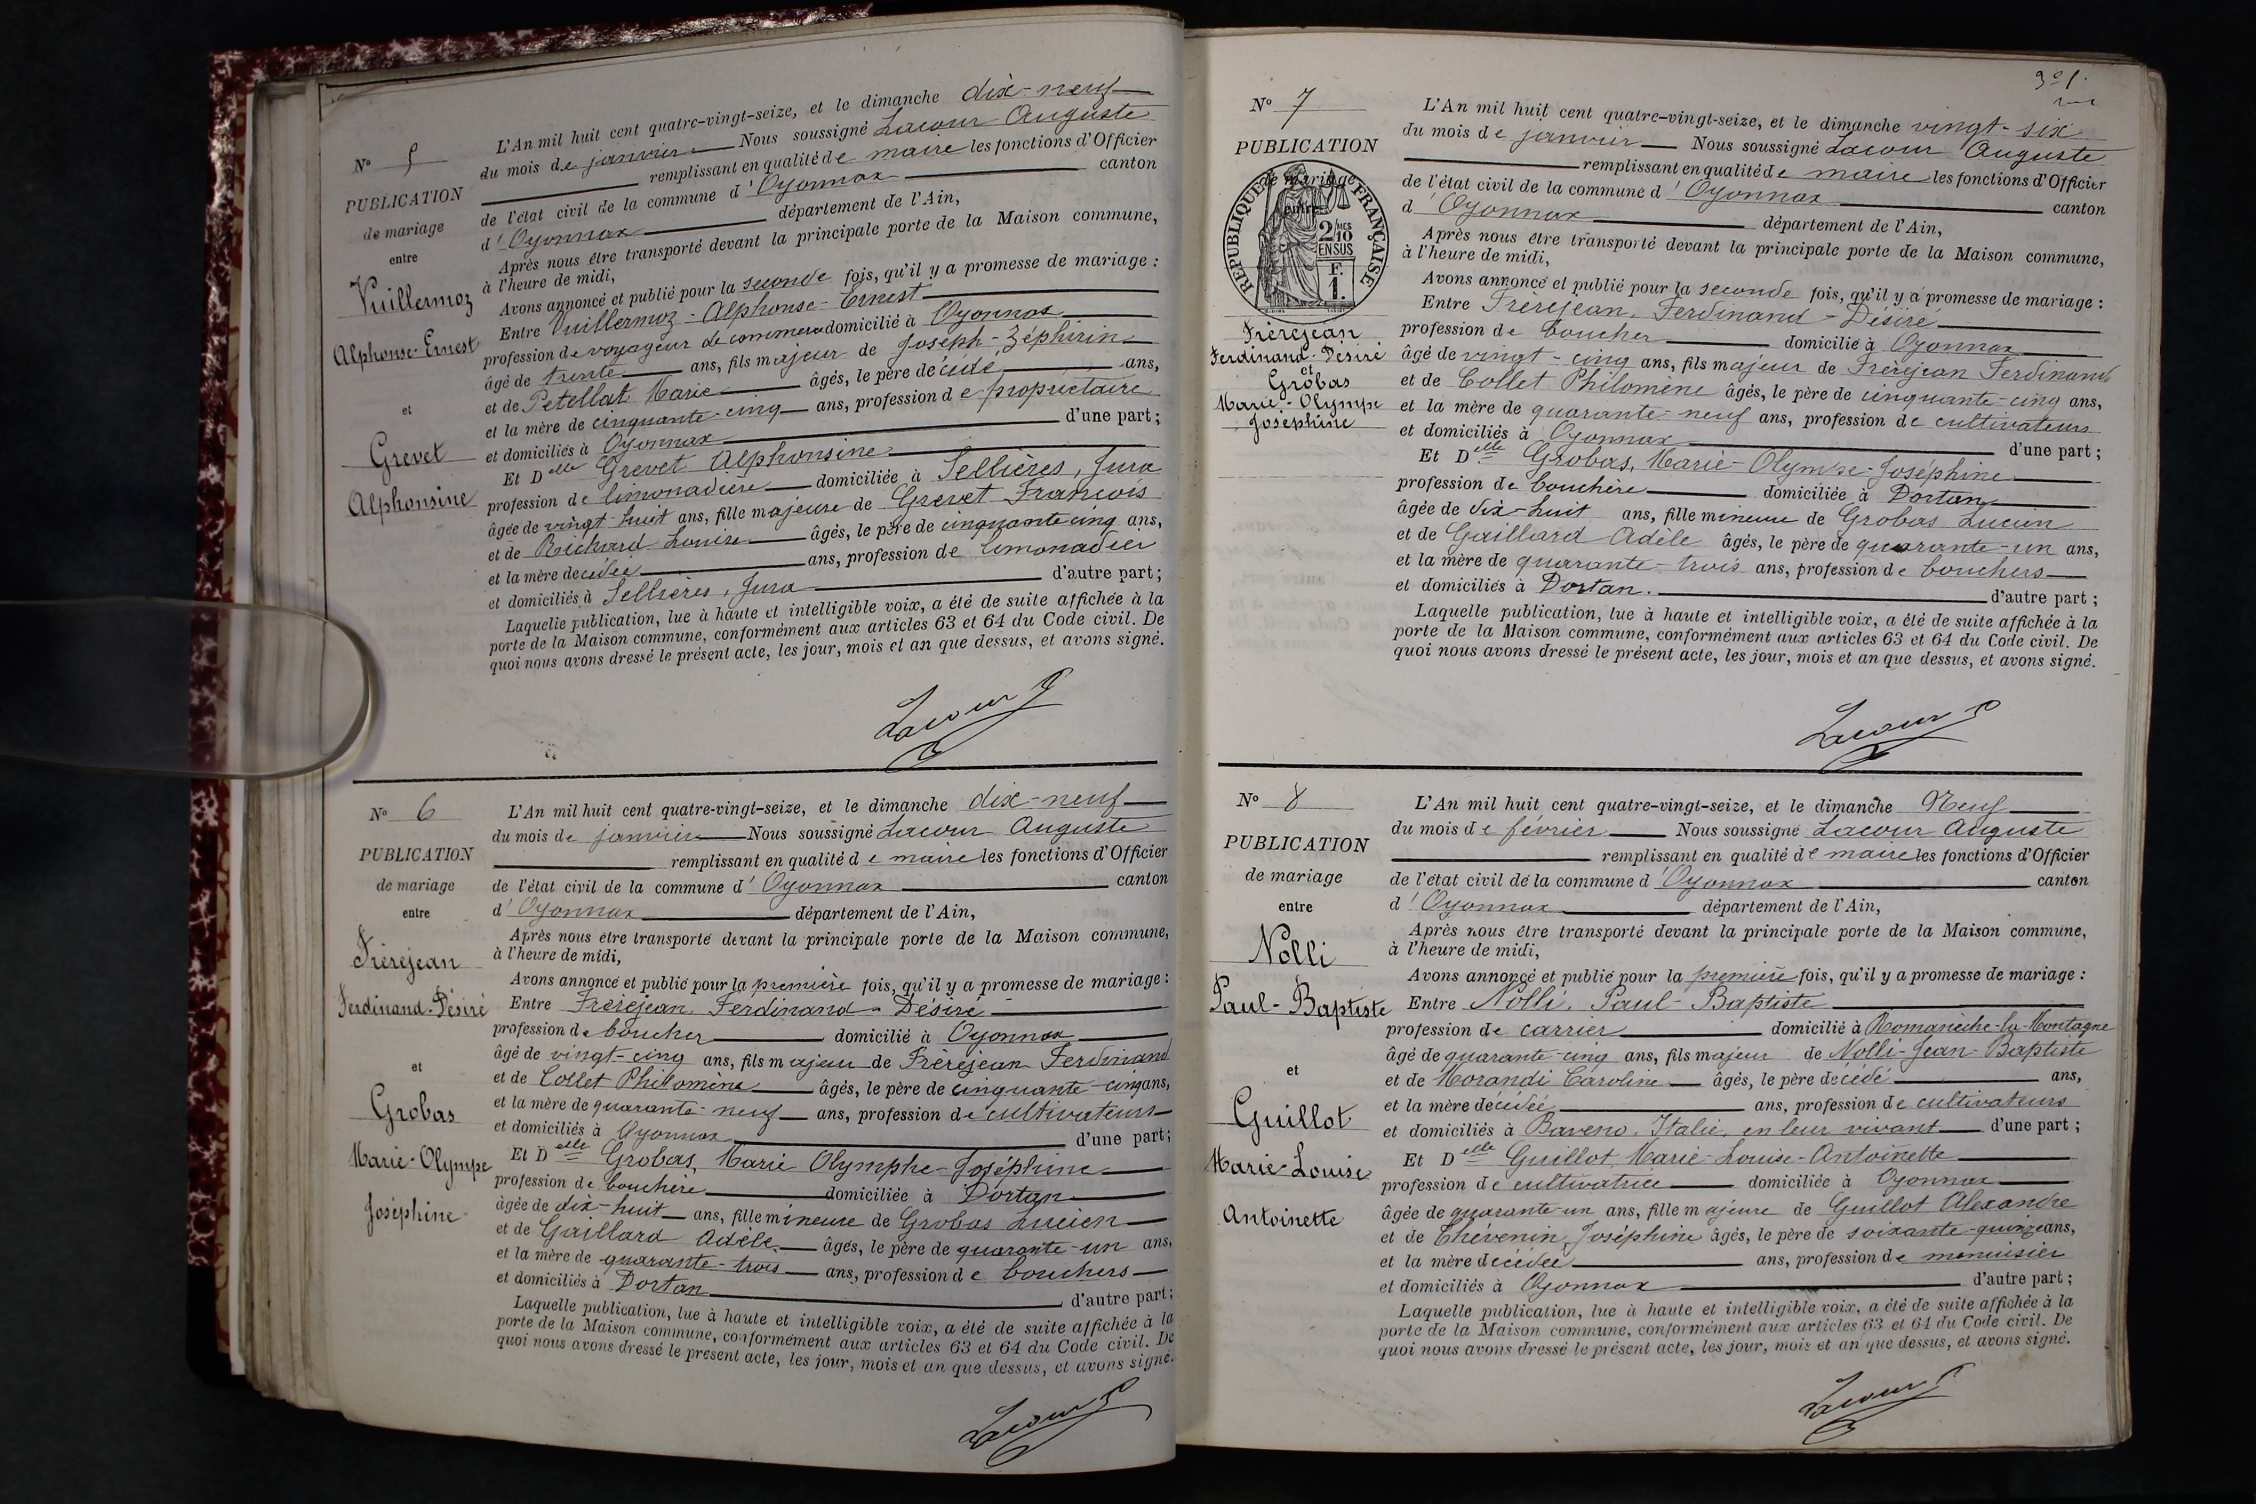 N° 5
PUBLICATION
de mariage
entre
Vuillermoz
Alphonse-Ernest
et
Grevet
Alphonsine
L'An mil huit cent quatre-vingt-seize, et le dimanche dix-neuf
du mois de janvier Nous soussigné Lacour Auguste
remplissant en qualité de maire les fonctions d'Officier
de l'état civil de la commune d'Oyonnax canton
d'Oyonnax département de l'Ain,
Après nous être transporté devant la principale porte de la Maison commune,
à l'heure de midi,
Avons annoncé et publié pour la seconde fois, qu'il y a promesse de mariage :
Entre Vuillermoz-Alphonse-Ernest
profession de voyageur de commerce domicilié à Oyonnax
âgé de trente ans, fils majeur de Joseph-Zéphirin
et de Petellat Marie âgés, le père décédé ans,
et la mère de cinquante-cinq ans, profession de propriétaire
et domiciliés à Oyonnax d'une part ;
Et Delle Grevet Alphonsine
profession de limonadière domiciliée à Sellières, Jura
âgée de vingt-huit ans, fille majeure de Grevet François
et de Richard Louise âgés, le père de cinquante cinq ans,
et la mère decédée ans, profession de limonadier
et domiciliés à Sellières, Jura d'autre part ;
Laquelle publication, lue à haute et intelligible voix, a été de suite affichée à la
porte de la Maison commune, conformément aux articles 63 et 64 du Code civil. De
quoi nous avons dressé le présent acte, les jour, mois et an que dessus, et avons signé.
Lacour
N° 6
PUBLICATION
de mariage
entre
Frèrejean
Ferdinand-Désiré
et
Grobas
Marie-Olympe
Joséphine
L'An mil huit cent quatre-vingt-seize, et le dimanche dix-neuf
du mois de janvier Nous soussigné Lacour Auguste
remplissant en qualité de maire les fonctions d'Officier
de l'état civil de la commune d'Oyonnax canton
d'Oyonnax département de l'Ain,
Après nous être transporté devant la principale porte de la Maison commune,
à l'heure de midi,
Avons annoncé et publié pour la première fois, qu'il y a promesse de mariage :
Entre Frèrejean, Ferdinand-Désiré
profession de boucher domicilié à Oyonnax
âgé de vingt-cinq ans, fils majeur de Frèrejean Ferdinand
et de Collet Philomène âgés, le père de cinquante-cinq ans,
et la mère de quarante-neuf ans, profession de cultivateurs
et domiciliés à Oyonnax d'une part;
Et Delle Grobas, Marie Olymphe-Joséphine
profession de bouchère domiciliée à Dortan
âgée de dix-huit ans, fille mineure de Grobas Lucien
et de Gaillard Adèle âgés, le père de quarante-un ans,
et la mère de quarante-trois ans, profession de bouchers
et domiciliés à Dortan d'autre part ;
Laquelle publication, lue à haute et intelligible voix, a été de suite affichée à la
porte de la Maison commune, conformément aux articles 63 et 64 du Code civil. De
quoi nous avons dressé le présent acte, les jour, mois et an que dessus, et avons signé.
Lacour
N° 7
PUBLICATION
de mariage
entre
RÉPUBLIQUE FRANÇAISE
2/10 MES
EN SUS
F.
1.
Frèrejean
Ferdinand-Désiré
et
Grobas
Marie-Olympe
Joséphine
L'An mil huit cent quatre-vingt-seize, et le dimanche vingt-six
du mois de janvier Nous soussigné Lacour Auguste
remplissant en qualité de maire les fonctions d'Officier
de l'état civil de la commune d'Oyonnax canton
d'Oyonnax département de l'Ain,
Après nous être transporté devant la principale porte de la Maison commune,
à l'heure de midi,
Avons annoncé et publié pour la seconde fois, qu'il y a promesse de mariage :
Entre Frèrejean, Ferdinand-Désiré
profession de boucher domicilié à Oyonnax
âgé de vingt-cinq ans, fils majeur de Frèrejean Ferdinand
et de Collet Philomène âgés, le père de cinquante-cinq ans,
et la mère de quarante-neuf ans, profession de cultivateurs
et domiciliés à Oyonnax d'une part ;
Et Delle Grobas, Marie-Olympe-Joséphine
profession de bouchère domiciliée à Dortan
âgée de dix-huit ans, fille mineure de Grobas Lucien
et de Gaillard Adèle âgés, le père de quarante-un ans,
et la mère de quarante-trois ans, profession de bouchers
et domiciliés à Dortan. d'autre part ;
Laquelle publication, lue à haute et intelligible voix, a été de suite affichée à la
porte de la Maison commune, conformément aux articles 63 et 64 du Code civil. De
quoi nous avons dressé le présent acte, les jour, mois et an que dessus, et avons signé.
Lacour
N° 8
PUBLICATION
de mariage
entre
Nolli
Paul-Baptiste
et
Guillot
Marie-Louise
Antoinette
L'An mil huit cent quatre-vingt-seize, et le dimanche Neuf
du mois de février Nous soussigné Lacour Auguste
remplissant en qualité de maire les fonctions d'Officier
de l'état civil de la commune d'Oyonnax canton
d'Oyonnax département de l'Ain,
Après nous être transporté devant la principale porte de la Maison commune,
à l'heure de midi,
Avons annoncé et publié pour la première fois, qu'il y a promesse de mariage :
Entre Nolli, Paul-Baptiste
profession de carrier domicilié à Romanèche-la-Montagne
âgé de quarante-cinq ans, fils majeur de Nolli-Jean-Baptiste
et de Morandi Caroline âgés, le père décédé ans,
et la mère décédée ans, profession de cultivateurs
et domiciliés à Baveno, Italie, en leur vivant d'une part ;
Et Delle Guillot, Marie-Louise-Antoinette
profession de cultivatrice domiciliée à Oyonnax
âgée de quarante-un ans, fille majeure de Guillot Alexandre
et de Thévenin Joséphine âgés, le père de soixante-quinze ans,
et la mère décédée ans, profession de menuisier
et domiciliés à Oyonnax d'autre part ;
Laquelle publication, lue à haute et intelligible voix, a été de suite affichée à la
porte de la Maison commune, conformément aux articles 63 et 64 du Code civil. De
quoi nous avons dressé le présent acte, les jour, mois et an que dessus, et avons signé.
Lacour